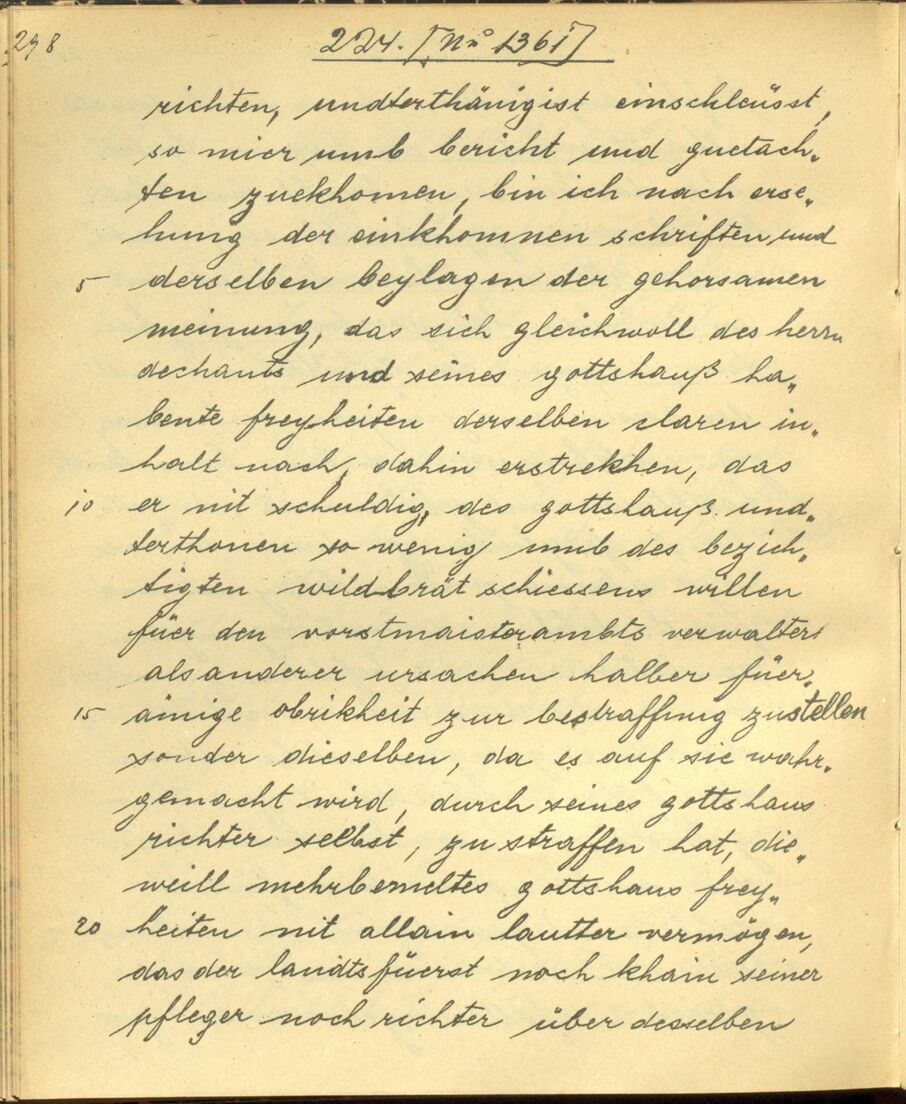 298
224. [No 1361]
richten, undterthänigist einschleüsst,
so mier umb bericht und guetach„
ten zuekhomen, bin ich nach erse„
hung der einkhomnen schriften und
5 derselben beylagen der gehorsamen
meinung, das sich gleichwoll des herrn
dechants und seines gottshauß ha„
bente freyheiten derselben claren in„
halt nach, dahin erstrekhen, das
10 er nit schuldig, des gottshauß und„
terthonen so wenig umb des bezich„
tigten wildbrät schiessens willen
füer den vorstmaisterambts verwalter
als anderer ursachen halber füer„
15 ainige obrikheit zur bestraffung zustellen
sonder dieselben, da es auf sie wahr„
gemacht wird, durch seines gottshaus
richter selbst, zu straffen hat, die„
weill mehrbemeltes gottshaus frey„
20 heiten nit allain lautter vermögen,
das der landtsfüerst noch khain seiner
pfleger noch richter über desselben